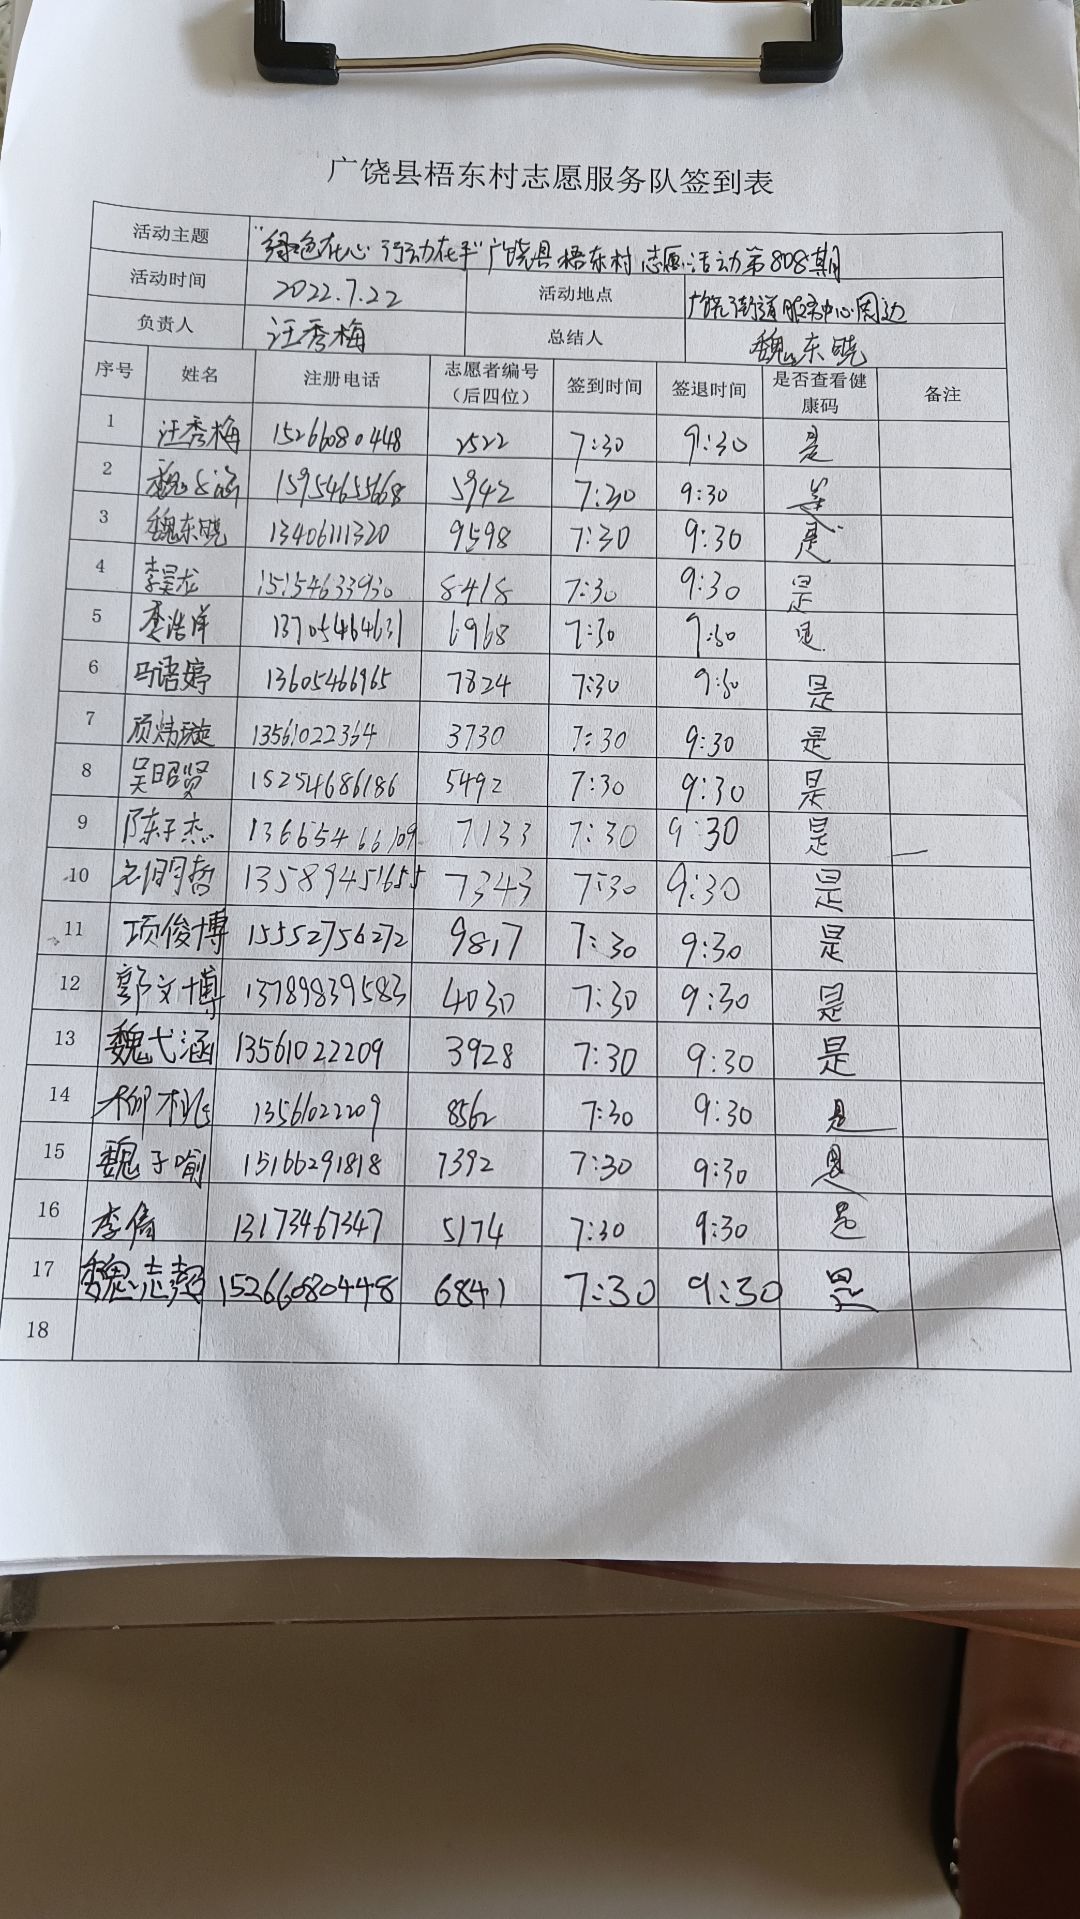 广饶县梧东村志愿服务队签到表
活动主题 "绿色在心 行动在手"广饶县梧东村志愿活动第808期
活动时间 2022.7.22 活动地点 广饶街道服务中心周边
负责人 汪秀梅 总结人 魏东晓
序号 姓名 注册电话 志愿者编号（后四位） 签到时间 签退时间 是否查看健康码 备注
1 汪秀梅 15266080448 2522 7:30 9:30 是
2 魏 15954655668 5942 7:30 9:30 是
3 魏东晓 13406111320 9598 7:30 9:30 是
4 李昊龙 15154633930 8418 7:30 9:30 是
5 李浩洋 13705464631 6968 7:30 9:30 是
6 马语婷 13605466965 7824 7:30 9:30 是
7 项炜璇 13561022364 3730 7:30 9:30 是
8 吴昭贤 15254686186 5492 7:30 9:30 是
9 陈子杰 13665466109 7133 7:30 9:30 是
10 13589451655 7343 7:30 9:30 是
11 项俊博 15552756272 9817 7:30 9:30 是
12 郭文博 13789839583 4030 7:30 9:30 是
13 魏弋涵 13561022209 3928 7:30 9:30 是
14 柳 13561022209 8562 7:30 9:30 是
15 魏子喻 15166291818 7392 7:30 9:30 是
16 李 13173467347 5174 7:30 9:30 是
17 魏志 15266080448 6841 7:30 9:30 是
18